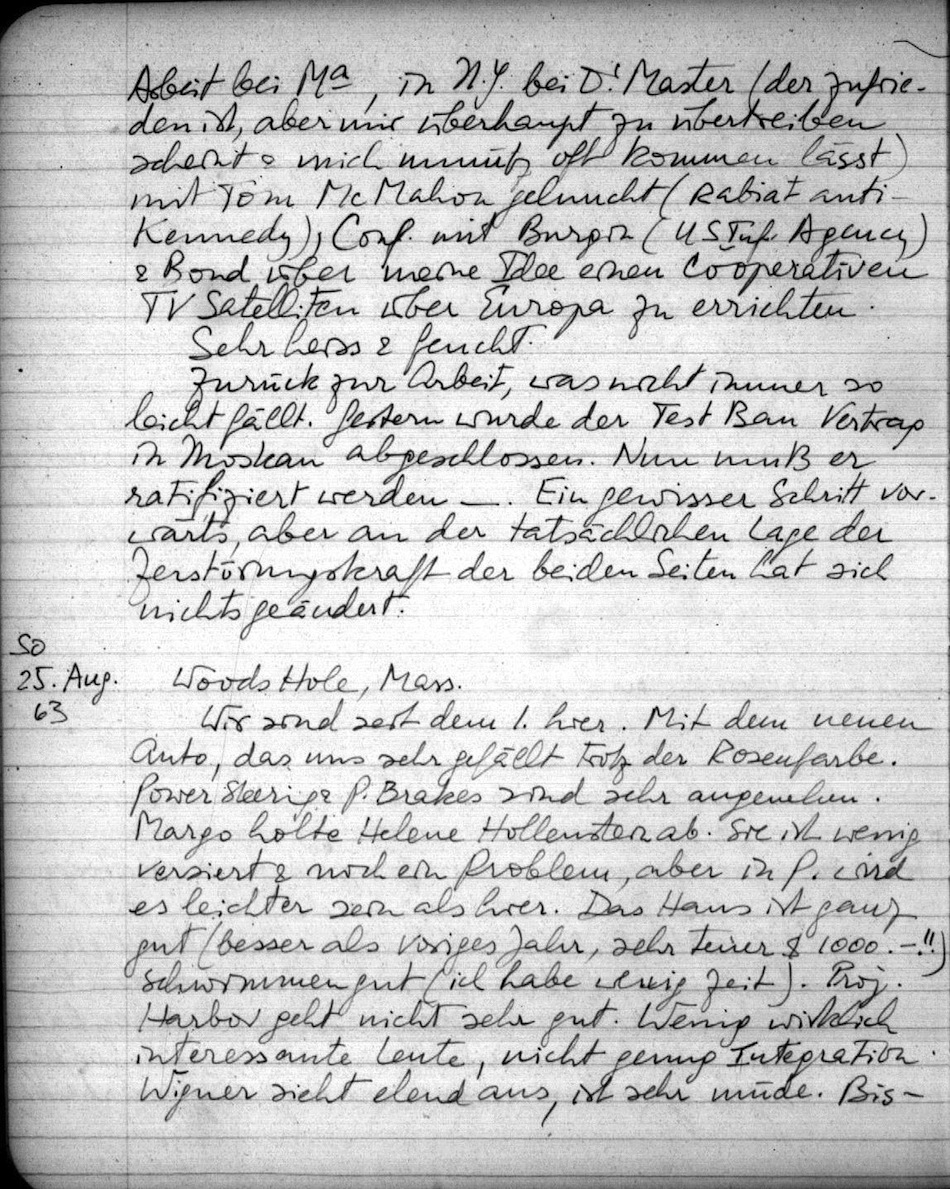 Arbeit bei Ma, in N.Y. bei Dr Master (der zufrie-
den ist, aber mir überhaupt zu übertreiben
scheint & mich unnütz oft kommen lässt)
mit Tom McMahon geluncht (Rabiat anti-
Kennedy), Conf. mit (US Inf. Agency)
& Bond über meine Idee einen Coöperativen
TV Satelliten über Europa zu errichten.
Sehr heiss & feucht.
Zurück zur Arbeit, was nicht immer so
leicht fällt. Gestern wurde der Test Ban Vertrag
in Moskau abgeschlossen. Nun muß er
ratifiziert werden —. Ein gewisser Schritt vor-
wärts, aber an der tatsächlichen Lage der
Zerstörungskraft der beiden Seiten hat sich
nichts geändert.
SO
25. Aug.
63
Woods Hole, Mass.
Wir sind seit dem 1. hier. Mit dem neuen
Auto, das uns sehr gefällt trotz der Rosenfarbe.
Power Steering & P. Brakes sind sehr angenehm.
Margo holte Helene Hollenstein ab. Sie ist wenig
versiert & noch ein Problem, aber in P. wird
es leichter sein als hier. Das Haus ist ganz
gut (besser als voriges Jahr, sehr teuer $ 1000.-!!)
Schwimmen gut (ich habe wenig Zeit). Proj.
Harbor geht nicht sehr gut. Wenig wirklich
interessante Leute, nicht genug Integration.
Wigner sieht elend aus, ist sehr müde. Bis-